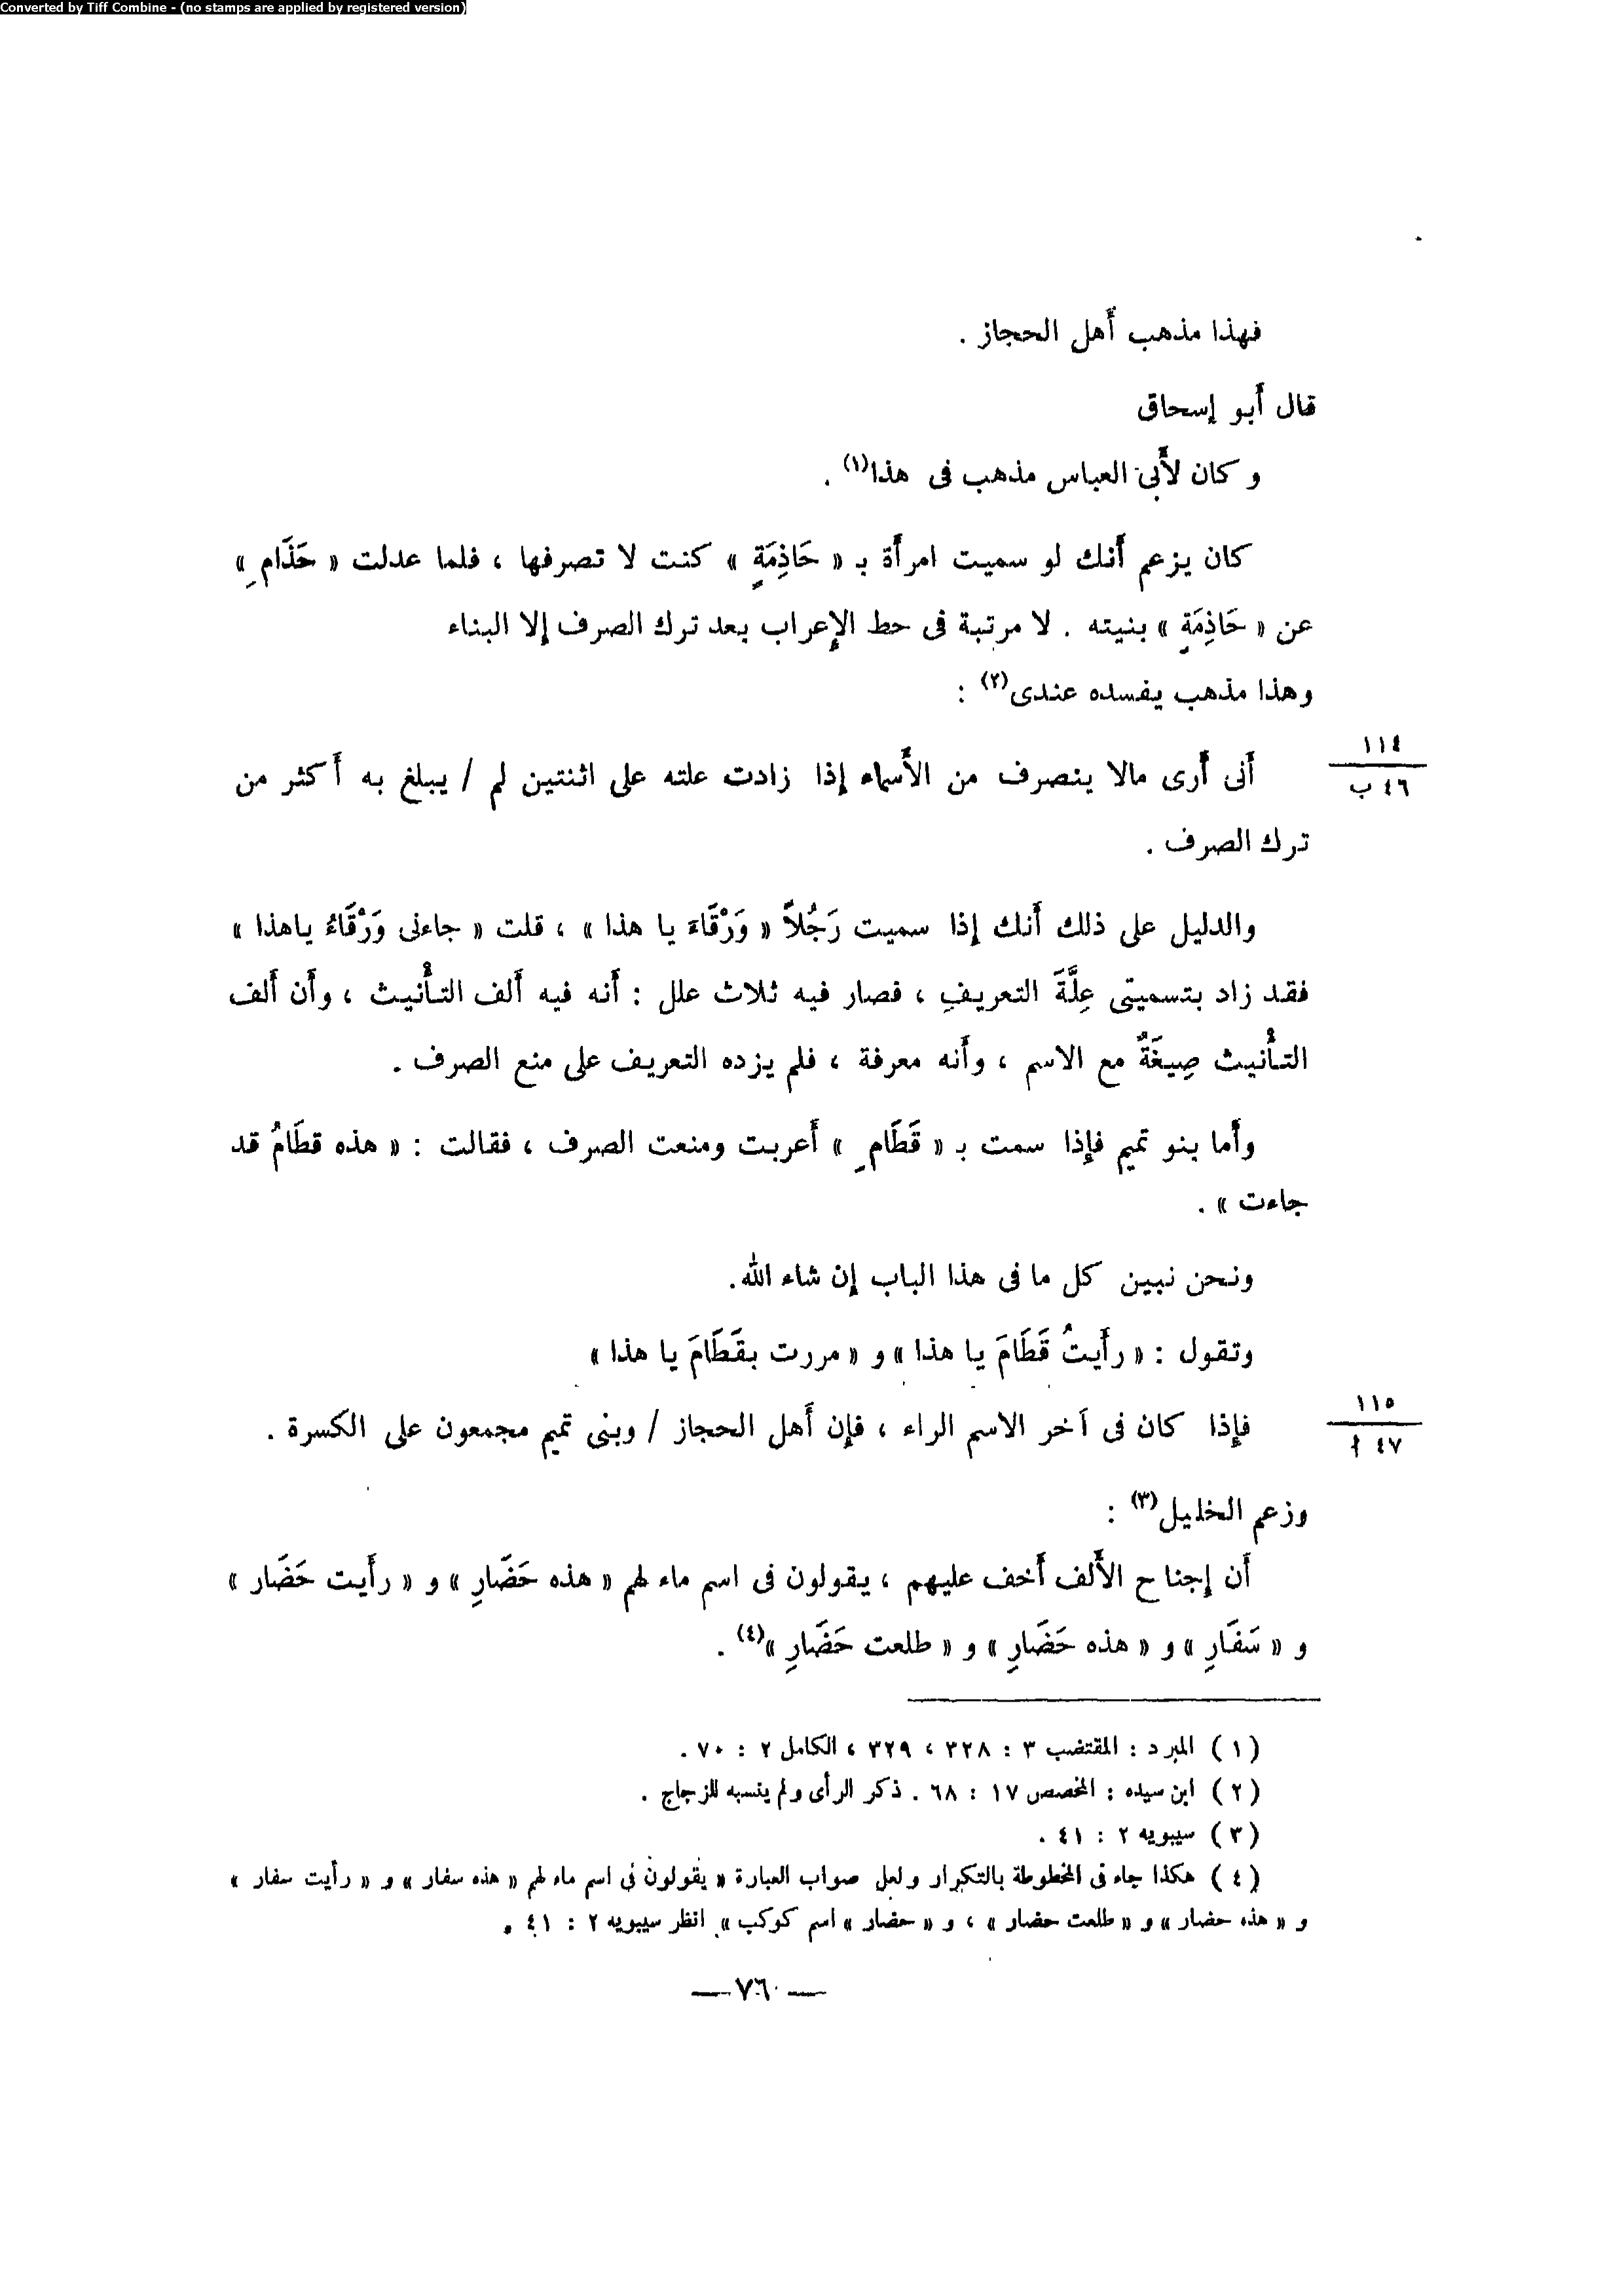 Converted by Tiff Combine - (no stamps are applied by registered version)
فهذا مذهب أَهل الحجاز .
قال أَبو إسحاق
و كان لأَبى العباس مذهب فى هذا(١) .
كان يزعم أَنك لو سميت امرأَة بـ « حَاذِمَةٍ » كنت لا تصرفها ، فلما عدلت « حَذَامِ »
عن « حَاذِمَةٍ » بنيته . لا مرتبة فى حط الإعراب بعد ترك الصرف إلا البناء
وهذا مذهب يفسده عندى(٢) :
١١٤
٤٦ ب
أَنى أَرى مالا ينصرف من الأَسماء إذا زادت علته على اثنتين لم / يبلغ به أَكثر من
ترك الصرف .
والدليل على ذلك أَنك إذا سميت رَجُلاً « وَرْقَاءَ يا هذا » ، قلت « جاءنى وَرْقَاءُ ياهذا »
فقد زاد بتسميتى عِلَّةَ التعريفِ ، فصار فيه ثلاث علل : أَنه فيه أَلف التأْنيث ، وأَن أَلف
التأْنيث صِيغَةٌ مع الاسم ، وأَنه معرفة ، فلم يزده التعريف على منع الصرف .
وأَما بنو تميم فإذا سمت بـ « قَطَامِ » أَعربت ومنعت الصرف ، فقالت : « هذه قطَامُ قد
جاءت » .
ونحن نبين كل ما فى هذا الباب إن شاء الله.
وتقول : « رأَيتُ قَطَامَ يا هذا » و « مررت بقَطَامَ يا هذا »
١١٥
٤٧ أ
فإذا كان فى آخر الاسم الراء ، فإن أَهل الحجاز / وبنى تميم مجمعون على الكسرة .
وزعم الخليل(٣) :
أَن إجناح الأَلف أَخف عليهم ، يقولون فى اسم ماء لهم « هذه حَضَارِ » و « رأَيت حَضَار »
و « سَفَارِ » و « هذه حَضَارِ » و « طلعت حَضَارِ »(٤) .
(١) المبرد : المقتضب ٣ : ٣٢٨ ، ٣٢٩ ، الكامل ٢ : ٧٠ .
(٢) ابن سيده : المخصص ١٧ : ٦٨ . ذكر الرأى ولم ينسبه للزجاج .
(٣) سيبويه ٢ : ٤١ .
(٤) هكذا جاء فى المخطوطة بالتكرار ولعل صواب العبارة « يقولون فى اسم ماء لهم « هذه سفار » و « رأيت سفار »
و « هذه حضار » و « طلعت حضار » ، و « حضار » اسم كوكب » انظر سيبويه ٢ : ٤١ .
— ٧٦ —